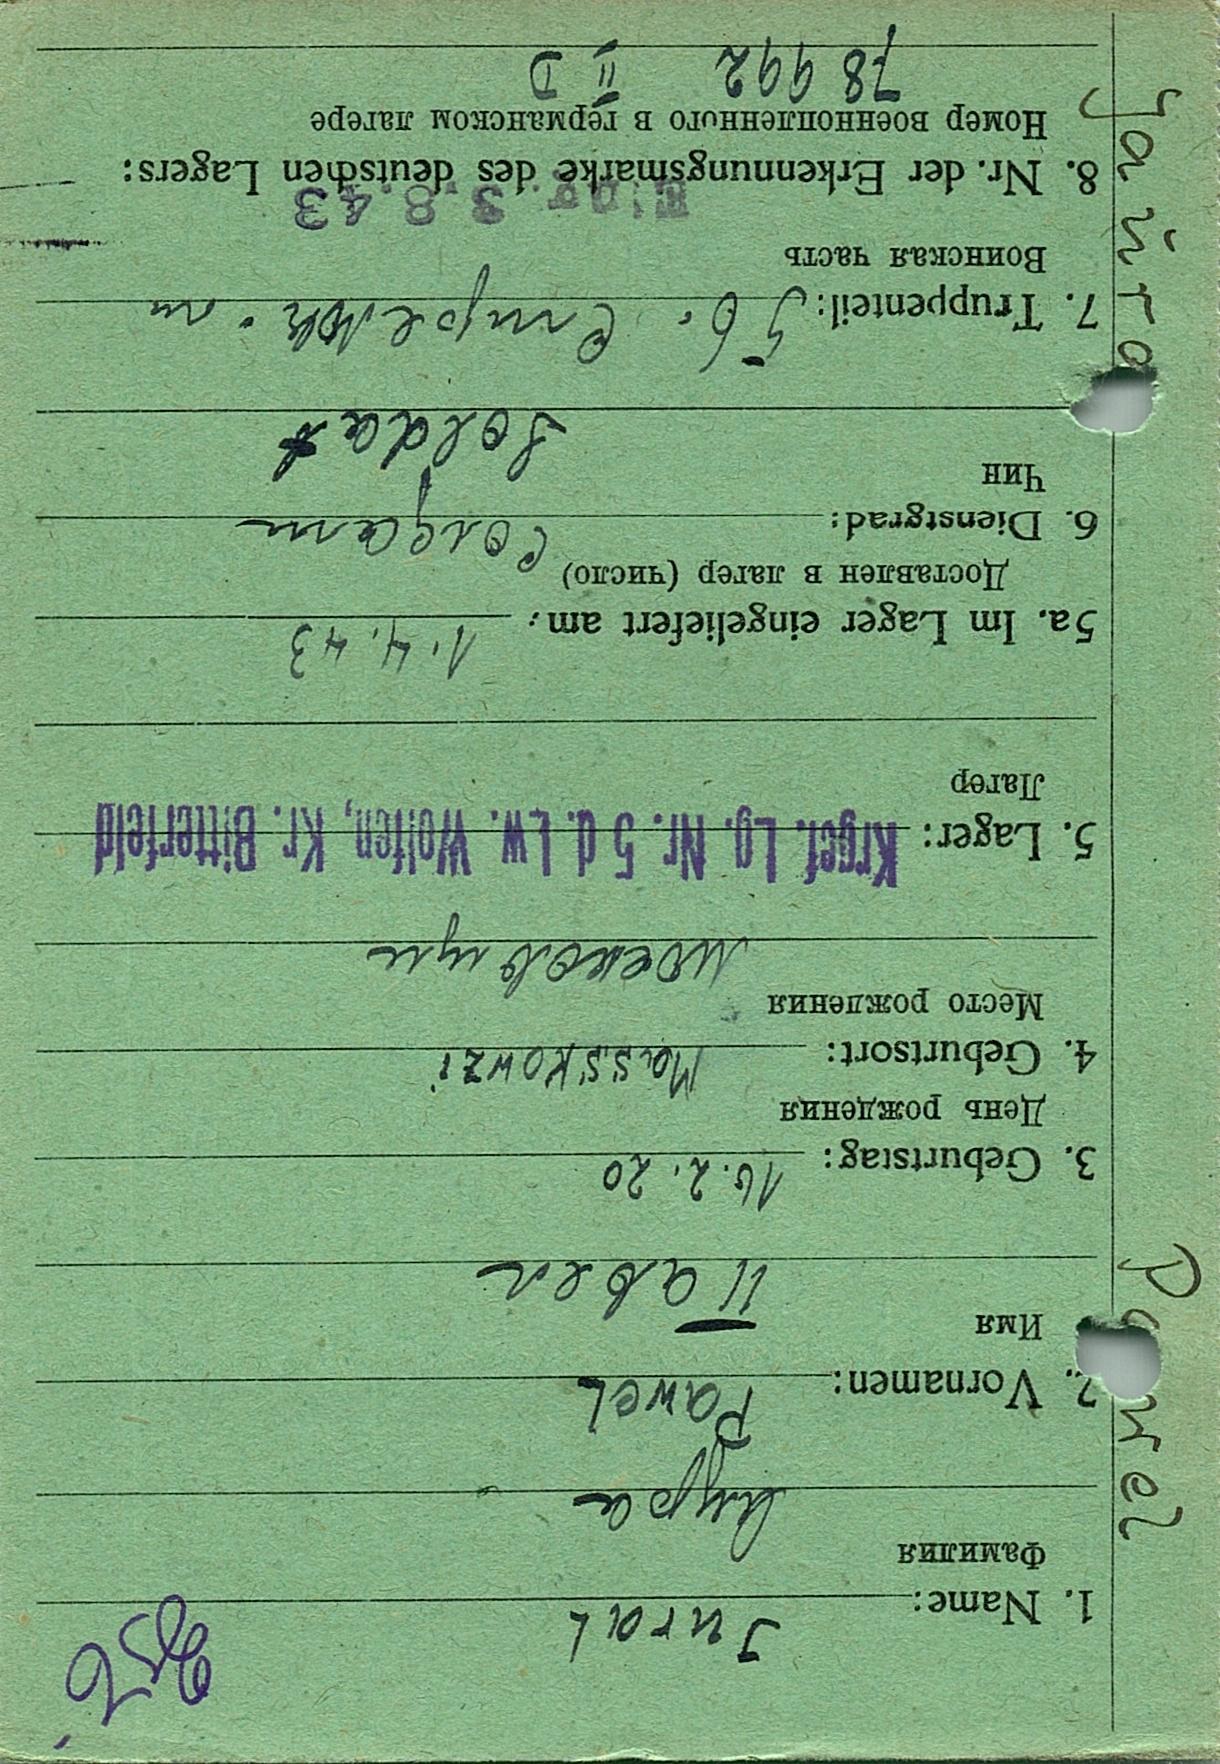 1. Name: Jural
Фамилия
2. Vornamen: Pawel
Имя
Павел
3. Geburtstag: 16.2.20
День рождения
4. Geburtsort: Masskowzi
Место рождения
5. Lager: Krgef. Lg. Nr. 5 d. Lw. Wolfen, Kr. Bitterfeld
Лагер
5a. Im Lager eingeliefert am: 1.4.43
Доставлен в лагер (число)
6. Dienstgrad: Солдат
Чин
Soldat
7. Truppenteil: 56.
Воинская часть
Eing. 3.8.43
8. Nr. der Erkennungsmarke des deutschen Lagers:
Номер военнопленного в германском лагере
78992 II D
Pawel